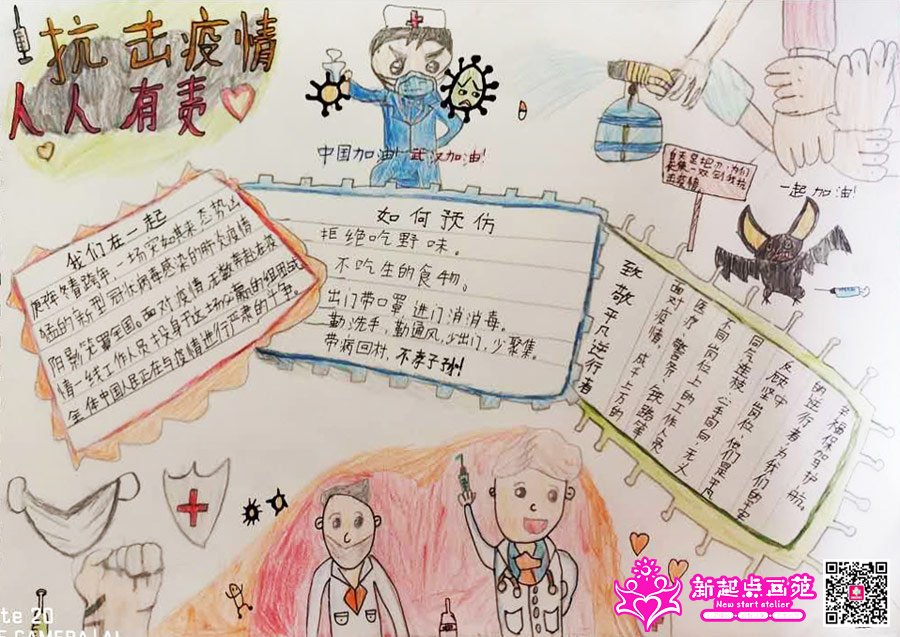 抗击疫情
人人有责
中国加油! 武汉加油!
一起加油!
我们在一起
庚年冬春跨年,一场突如其来态势凶
猛的新型冠状病毒感染的肺炎疫情
阴影笼罩全国。面对疫情
情一线工作人员
全体中国人民正在与疫情进行严肃的斗争。
如何预伤
拒绝吃野味。
不吃生的食物。
出门带口罩 进门消消毒。
勤洗手,勤通风,少出门,少聚集。
带病回村,不孝子孙!
致敬平凡逆行者
面对疫情,成千上万的
医疗、警务、铁路等
不同岗位上的工作人员
同气连枝,心手同向,无义
反顾坚守岗位,他们是平凡
的逆行者,为我们的平安
幸福保驾护航。
新起点画苑
New start atelier